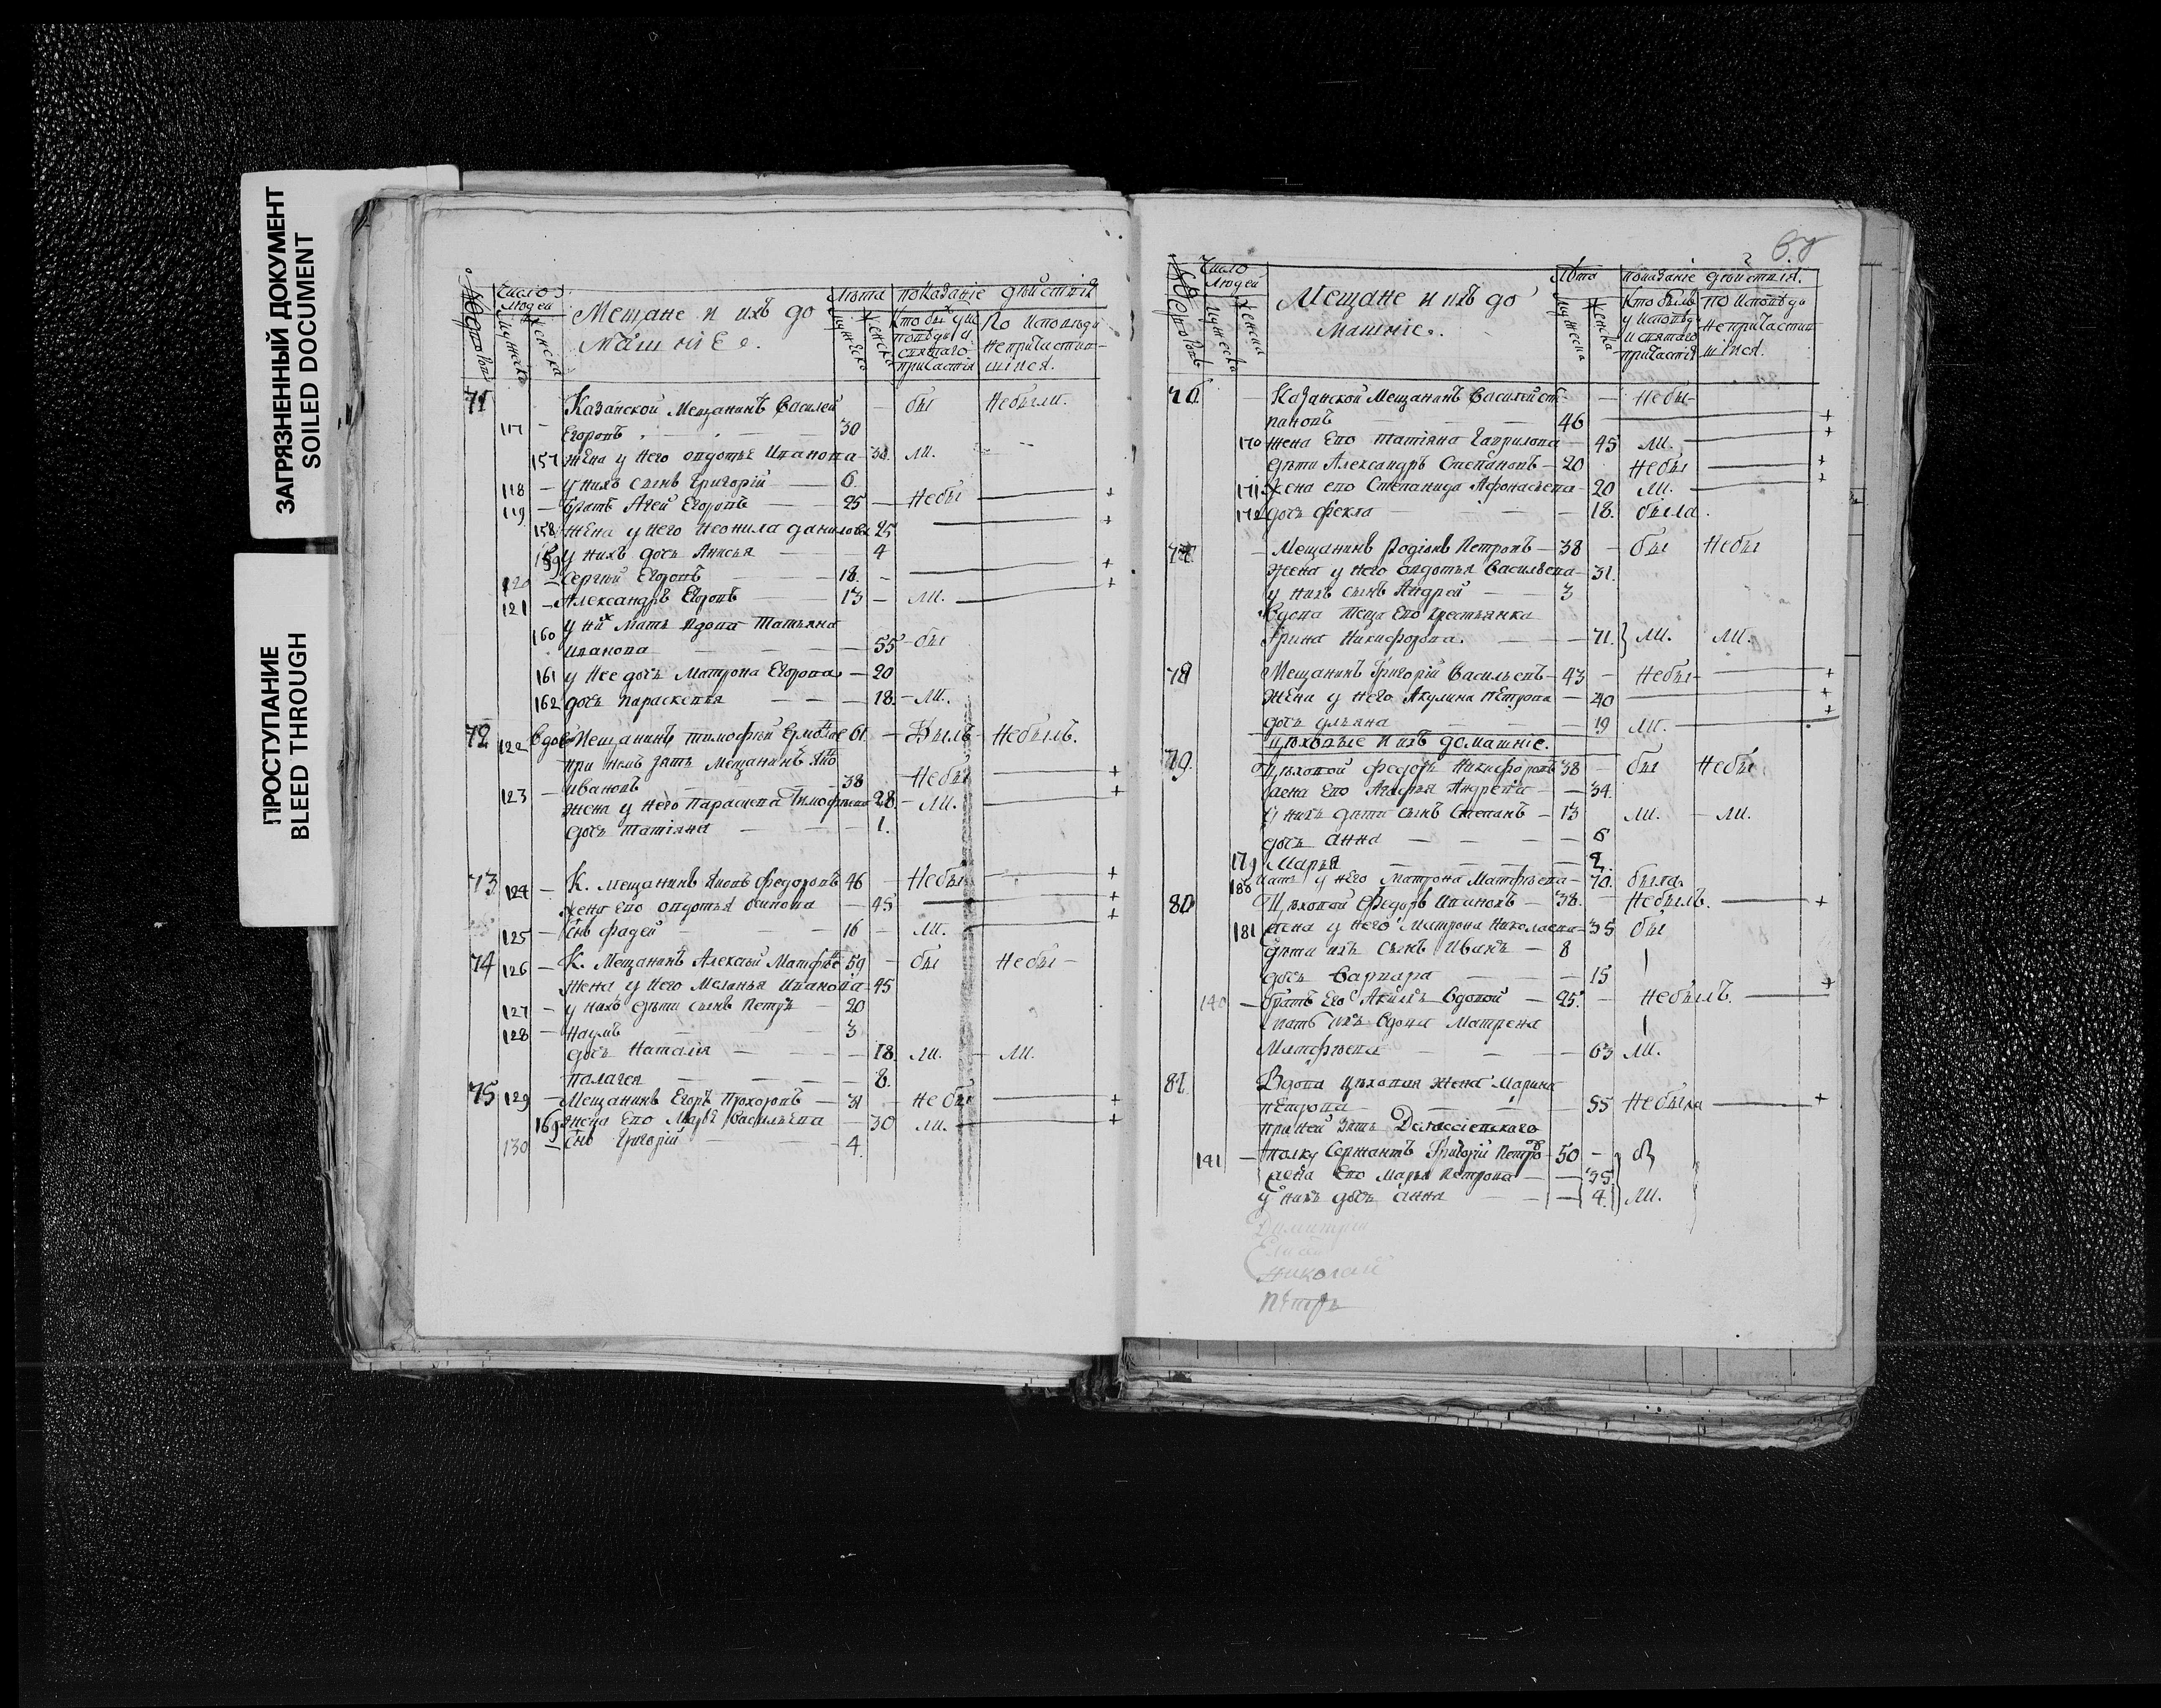 ЗАГРЯЗНЕННЫЙ ДОКУМЕНТ
SOILED DOCUMENT
ПРОСТУПАНИЕ
BLEED THROUGH
Число людей
Мещане и ихъ до
машніе.
Лѣта
показаніе дѣйствія
мужеска
женска
Кто был у ис
повѣди и
святаго
причастія
По исповѣди
непричастив-
шійся.
71 Казанской Мещанинъ Василей бы Небыли.
117 - Егоровъ - 30
157 жена у него овдотья Иванова - 30 ли.
118 - у нихъ сынъ Григорій - 6.
119 - братъ Агей Егоровъ - 25 - Небы +
158 жена у него неонила данилова 25 +
159 у нихъ дочь Анисья - 4
120 - Сергѣй Егоровъ - 18. - +
121 - Александръ Егоровъ - 13 - ли. +
160 у них мать вдова Татьяна
Иванова - 55 - бы
161 у нее дочь Матрона Егорова - 20
162 дочь параскевья - 18 - ли.
72 122 Вдовъ Мещанинъ тимофѣй 61 - Былъ - Небылъ.
при немъ зять Мещанинъ
123 - Ивановъ - 38 - Небы +
жена у него Парасковя Тимофѣева 28 - ли. +
дочь татіяна - 1.
73 124 - К. Мещанинъ Яковъ федоровъ 46 - Небы +
жена ево овдотья осипова - 45 +
125 - Снъ фадей - 16 - ли. +
74 126 - К. Мещанинъ Алексѣй Матфѣе 59 - бы Небы -
жена у него Меланья Иванова 45
127 - у нихъ дѣти сынъ Петръ - 20
128 - Наумъ - 3
дочь Наталія - 18 ли. - ли.
палагея - 8.
75 129 - Мещанинъ Егоръ Прохоровъ - 31 - Небы +
169 жена Ево Марья Васильева - 30 ли. +
130 - Снъ Григорій - 4.
Число людей
мужеска
женска
Мещане и ихъ до
машніе.
Лѣта
мужеска
женска
показаніе дѣйствія.
Кто былъ
у исповѣди
и святаго
причастія
по исповѣди
непричастив
шійся.
76. - Казанской Мещанинъ Василей Сте - Небы-
пановъ - 46 +
170 жена Ево татіяна Гаврилова - 45 ли. +
дѣти Александръ Степановъ - 20 Небы +
171 жена ево Степанида Афонасьева - 20 ли. +
172 дочь фекла - 18. была.
77. - Мещанинъ Родіонъ Петровъ - 38 - бы Небы
жена у него овдотья Васильева - 31.
у нихъ сынъ Андрей - 3
Вдова теща Ево крестьянка
Ирина Никифорова. - 71. ли. ли.
78 Мещанинъ Григорій Васильевъ - 43 - Небы- +
жена у него Акулина Петрова - 40 +
дочь ульяна - 19 ли. +
цѣховые и ихъ домашніе.
79. Цѣховой федоръ Никифоровъ 38 - бы Небы
жена Ево Агафья Андреева - 34.
у нихъ дѣти сынъ Степанъ - 13 ли. - ли.
дочь анна - 6
179 Марья - 2.
180 Мать у него Матрона Матфѣева - 70. была
80 Цѣховой Федоръ Ивановъ - 38. - Небылъ. +
181 жена у него Матрона Николаева - 35 бы
дѣти ихъ сынъ Иванъ - 8
дочь Варвара - 15
140 - братъ Его Акимъ Вдовой - 25. - небылъ. +
мать ихъ вдова Матрена
Матфѣева - 63 ли.
81 Вдова цѣховая жена Марина
петрова - 55 Небыла +
при ней зять
141 - полку Сержантъ Григорій Петровъ 50 - бы
жена Ево Марья Петрова - 35
у нихъ дочь анна - 4. ли.
Димитрій
Николай
Петръ